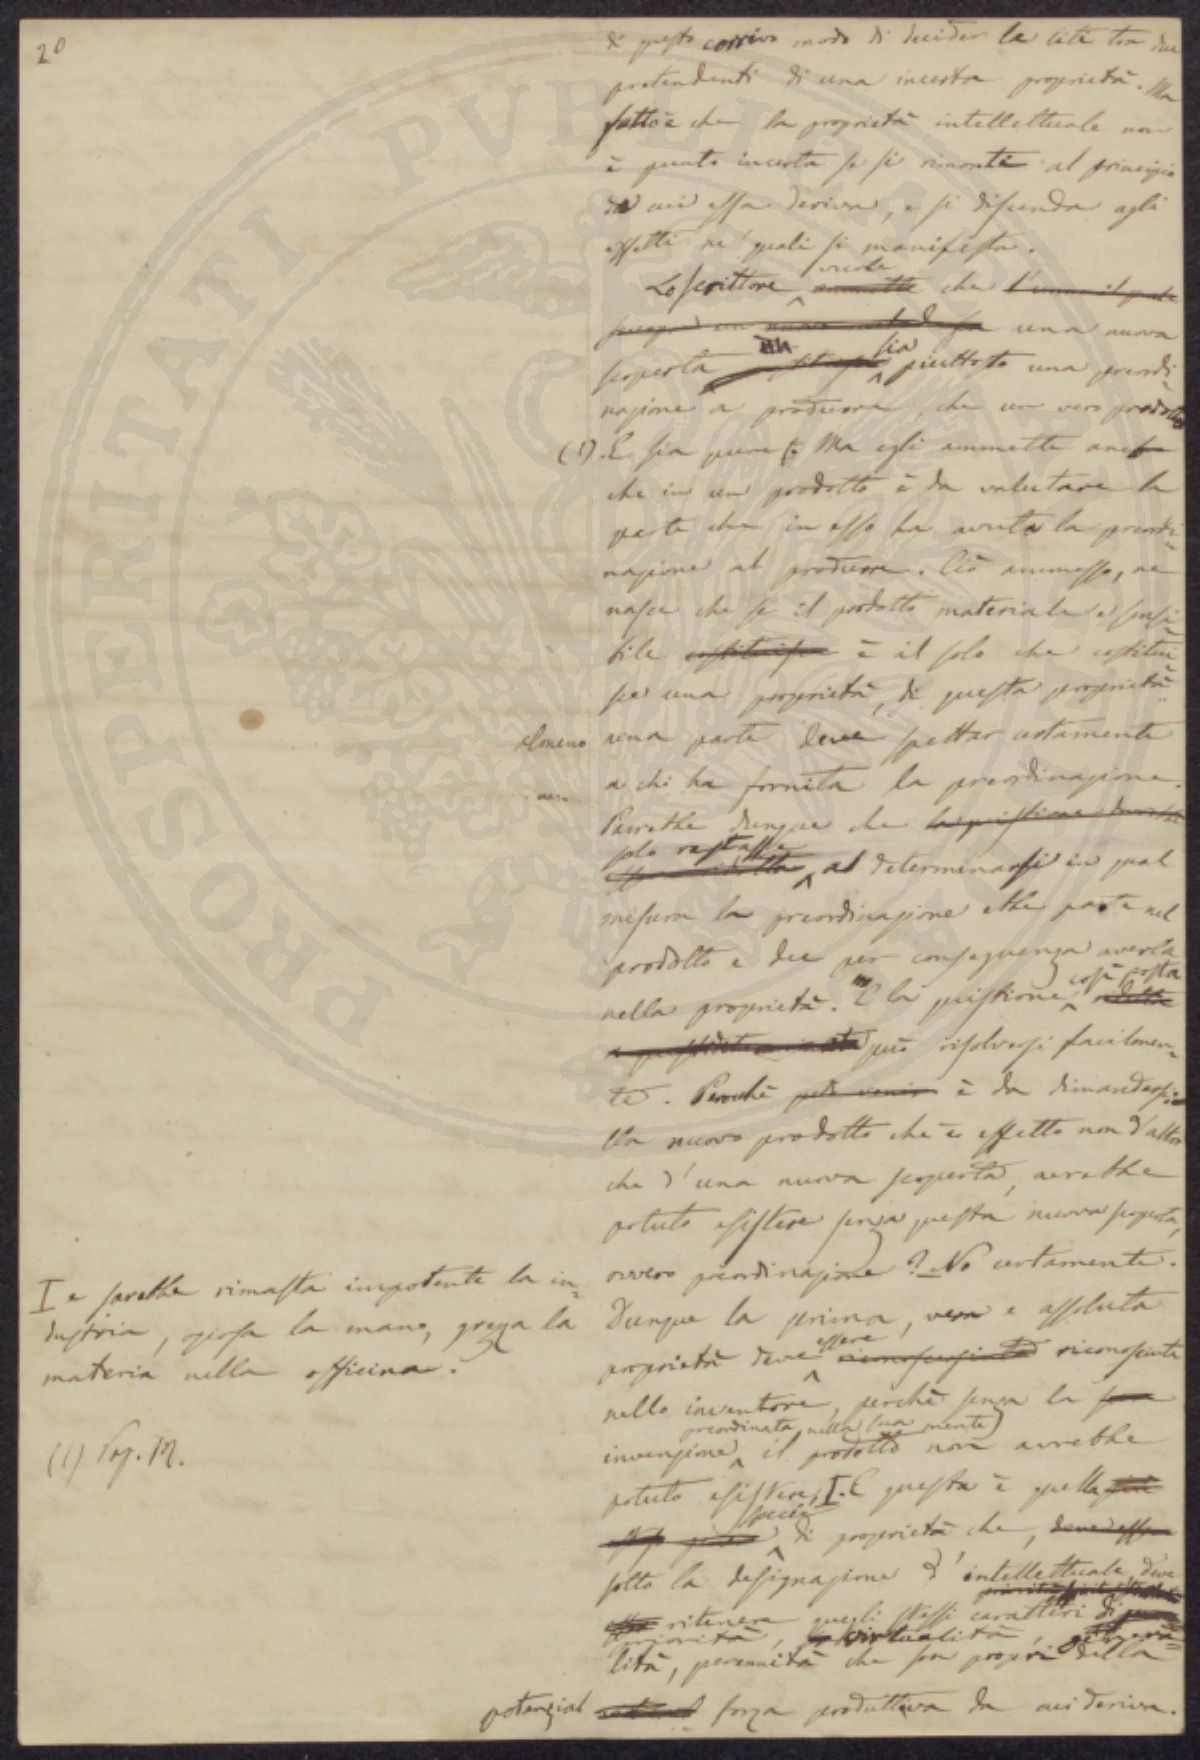 20
di questo corrivo modo di decider la lite tra due
pretendenti di una incerta proprietà. Ma
fatto è che la proprietà intellettuale non
è punto incerta se si rimonti al principio
da cui essa deriva, e si discenda agli
effetti ne' quali si manifesta.
vuole
Lo scrittore ammette che l'uomo il quale
una nuova
sia
scoperta piuttosto una preordi
nazione a produrre, che un vero prodotto
(1). E sia pure. Ma egli ammette anche
che in un prodotto è da valutare la
parte che in esso ha avuta la preordi=
nazione al produrre. Ciò ammesso, ne
nasce che se il prodotto materiale e sensi=
bile costituisce è il solo che costitui
sce una proprietà, di questa proprietà
almeno una parte deve spettar certamente
a chi ha fornita la preordinazione.
Parrebbe dunque che la quistione dovrebbe
solo restasse
a determinarsi in qual
misura la preordinazione ebbe parte nel
prodotto e dee per conseguenza averla
così posta
nella proprietà. E la quistione ridotta
può risolversi facilmen=
te. Perocchè è da dimandarsi:
Un nuovo prodotto che è effetto non d'altro
che d'una nuova scoperta, avrebbe
potuto esistere senza questa nuova scoperta,
ovvero preordinazione? No certamente.
Dunque la prima, vera e assoluta
essere
proprietà deve riconosciuta
nello inventore, perchè senza la
preordinata nella sua mente
invenzione il prodotto non avrebbe
potuto esistere, I. E questa è quella
specie
di proprietà che, deve essere
sotto la designazione d'intellettuale, deve
ritenere quegli stessi caratteri di
priorità, virtualità, genera=
lità, perennità che son propri della
potenzial forza produttiva da cui deriva.
I e sarebbe rimasta impotente la in=
dustria, oziosa la mano, grezza la
materia nella officina.
(1) Pag. 17.
PROSPERITATI PUBLICAE